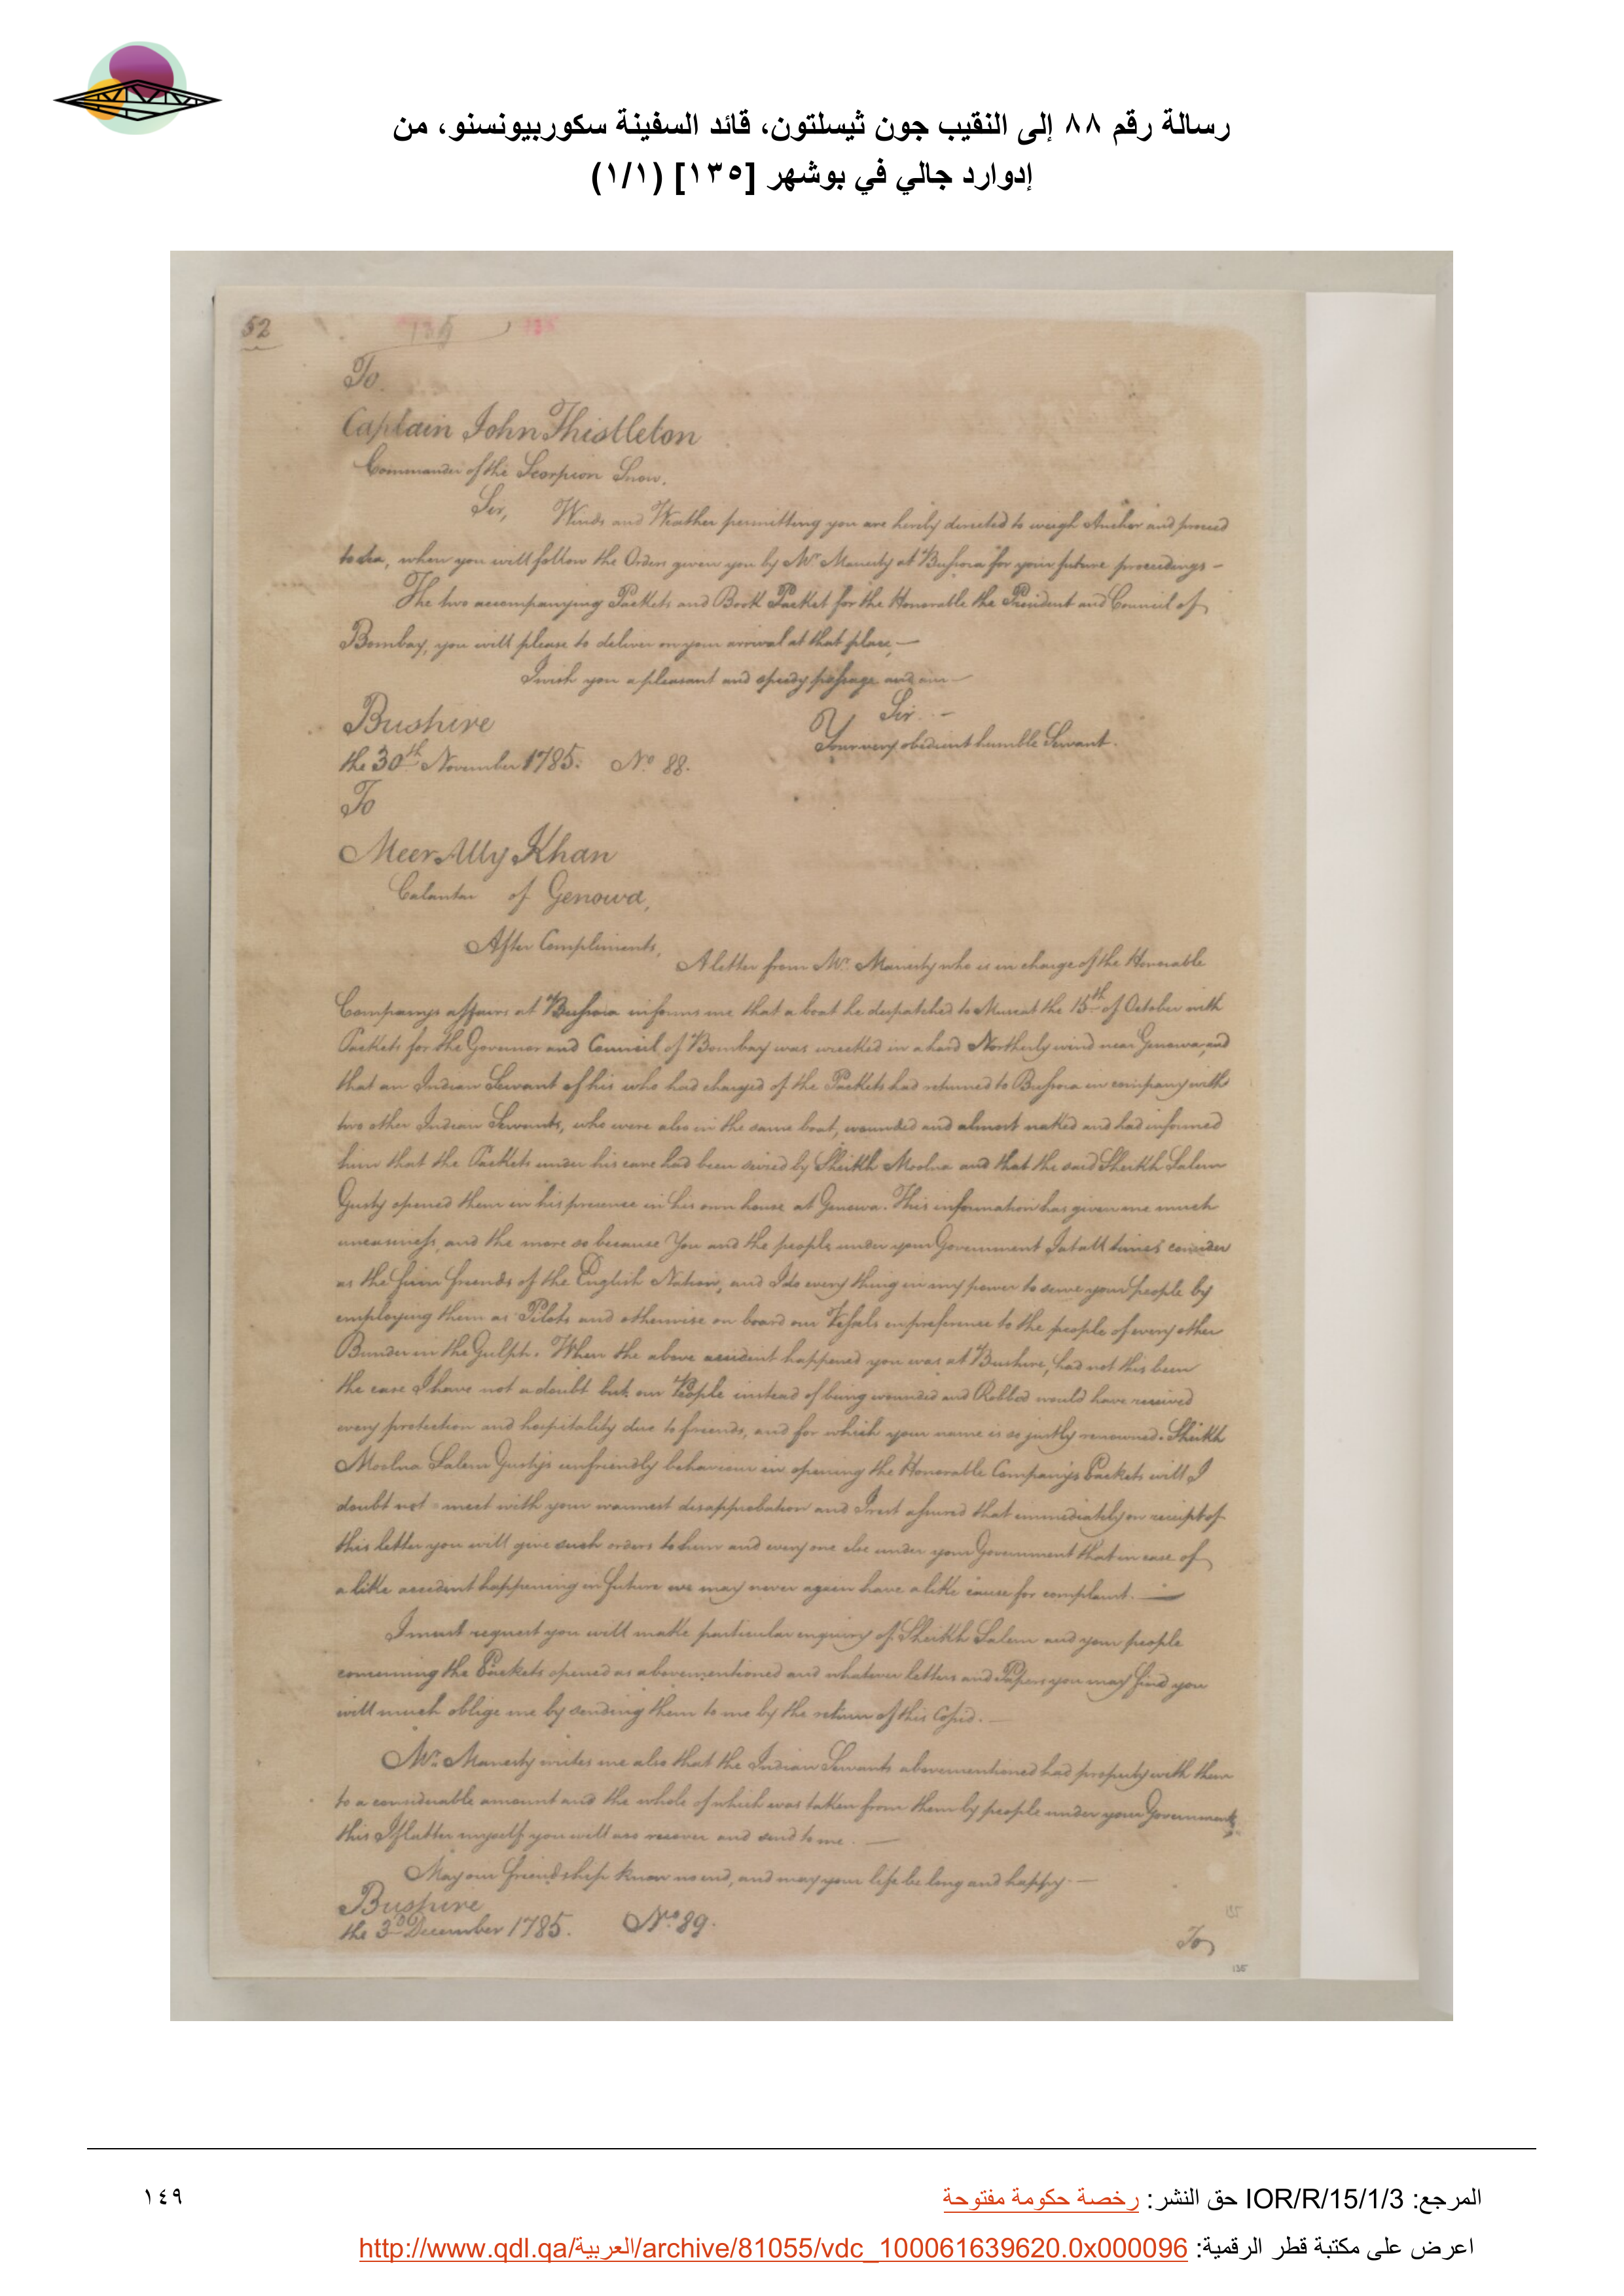 رسالة رقم ٨٨ إلى النقيب جون ثيسلتون، قائد السفينة سكوربيونسنو، من
إدوارد جالي في بوشهر [١٣٥] (١/١)
52
135
135
To
Captain John Thistleton
Commander of the Scorpion Snow.
Sir, Winds and Weather permitting you are hereby directed to weigh Anchor and proceed
to Sea, when you will follow the Orders given you by Mr. Manesty at Bussora for your future proceedings -
The two accompanying Packets and Book Packet for the Honorable the President and Council of
Bombay, you will please to deliver on your arrival at that place, —
I wish you a pleasant and speedy passage and am —
Sir. -
Bushire
Your very obedient humble Servant.
the 30th November 1785. No. 88.
To
Meer Ally Khan
Calantar of Genowa,
After Compliments,
A letter from Mr. Manesty who is in charge of the Honorable
Companys affairs at Bussora informs me that a boat he despatched to Muscat the 15th of October with
Packets for the Governor and Council of Bombay was wrecked in a hard Northerly wind near Genowa, and
that an Indian Servant of his who had charged of the Packets had returned to Bussora in company with
two other Indian Servants, who were also in the same boat, wounded and almost naked and had informed
him that the Packets under his care had been seized by Sheikh Moolna and that the said Sheikh Salem
Gusty opened them in his presence in his own house at Genowa. This information has given me much
uneasiness, and the more so because You and the people under your Government I at all times consider
as the firm friends of the English Nation, and I do every thing in my power to serve your people by
employing them as Pilots and otherwise on board our Vessels in preference to the people of every other
Bunder in the Gulph. When the above accident happened you was at Bushire, had not this been
the case I have not a doubt but our People instead of being wounded and Robbed would have received
every protection and hospitality due to friends, and for which your name is so justly renowned. Sheikh
Moolna Salem Gustys unfriendly behaviour in opening the Honorable Company's Packets will I
doubt not meet with your warmest disapprobation and I rest assured that immediately on receipt of
this letter you will give such orders to him and every one else under your Government that in case of
a like accident happening in future we may never again have a like cause for complaint. —
I must request you will make particular enquiry of Sheikh Salem and your people
concerning the Packets opened as abovementioned and whatever letters and Papers you may find you
will much oblige me by sending them to me by the return of this Cosid. —
Mr. Manesty writes me also that the Indian Servants abovementioned had property with them
to a considerable amount and the whole of which was taken from them by people under your Government,
this I flatter myself you will also recover and send to me. —
May our friendship know no end, and may your life be long and happy. —
Bushire
the 3d December 1785. No. 89.
To
135
135
المرجع: IOR/R/15/1/3 حق النشر: رخصة حكومة مفتوحة
١٤٩
اعرض على مكتبة قطر الرقمية: http://www.qdl.qa/العربية/archive/81055/vdc_100061639620.0x000096